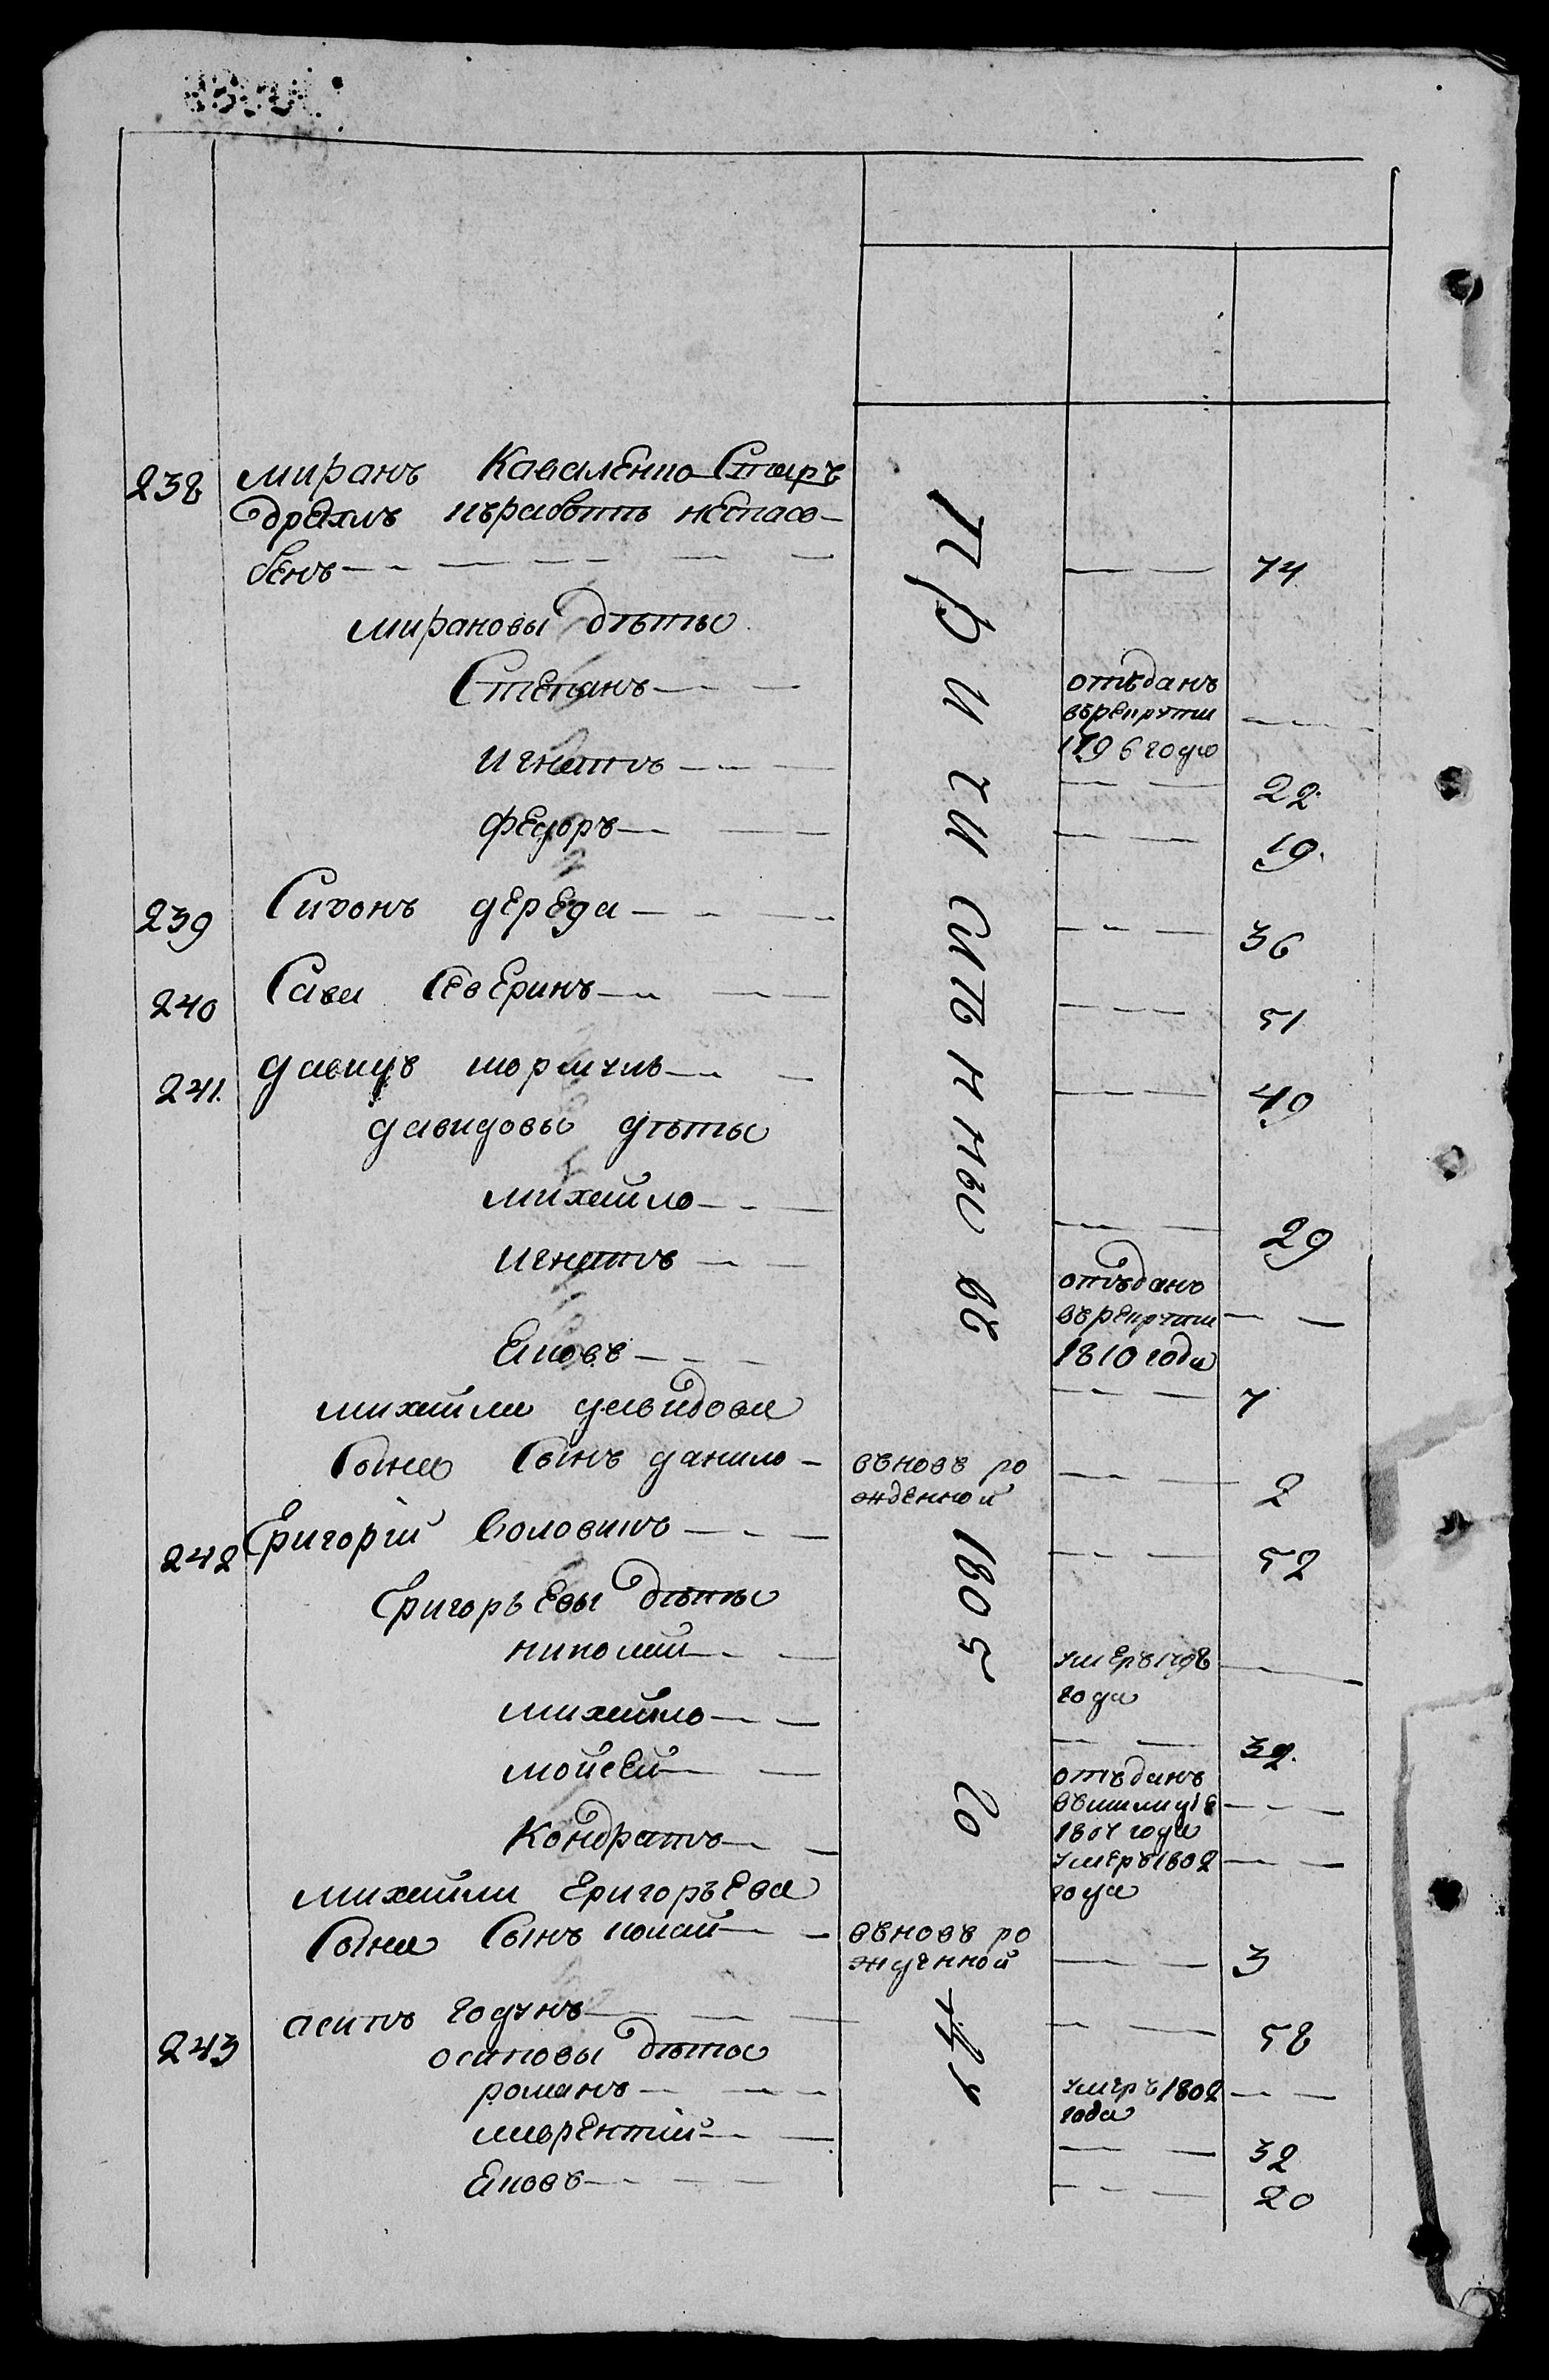 238 миранъ Коваленко Старъ
дряхлъ къработѣ неспасо-
бенъ 74
мирановы дѣты
Степанъ отъданъ
върекруты
1796 году
Игнатъ 22
Федоръ 19
239 Сидонъ дереда 36
240 Сава Северинъ 51
241 давидъ 49
давидовы дѣты
михайло 29
Игнатъ отъданъ
върекруты
1810 года
Яковъ 7
михайли давидова
Сына Сынъ данило вновъ ро
жденной 2
242 Григорий Воловикъ 52
Григоръевы дѣты
николай умеръ 1798
года
михайло 32
мойсей отъданъ
въмилицiю
1807 года
Кондратъ умеръ 1802
года
михайли Григоръева
Сына Сынъ вновъ ро
жденной 3
243 асипъ Годунъ 58
осиповы дѣты
романъ умеръ 1802
года
лаврентiй 32
Яковъ 20
При чи сле нны въ 1805 го ду